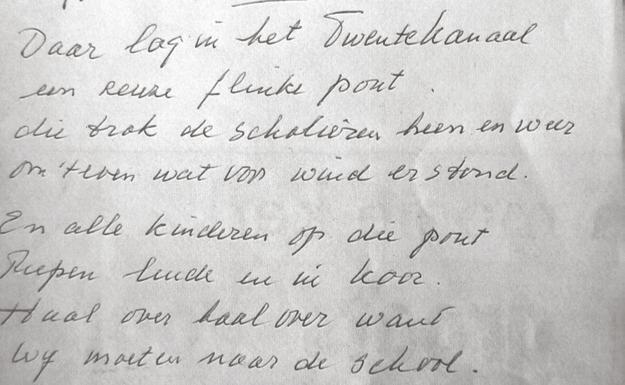 Daar lag in het Twentekanaal
een reuze flinke pont.
die trok de scholieren heen en weer
om 't even wat voor wind er stond.
En alle kinderen op die pont
Riepen luide en in koor.
Haal over haal over want
Wy moeten naar de school.